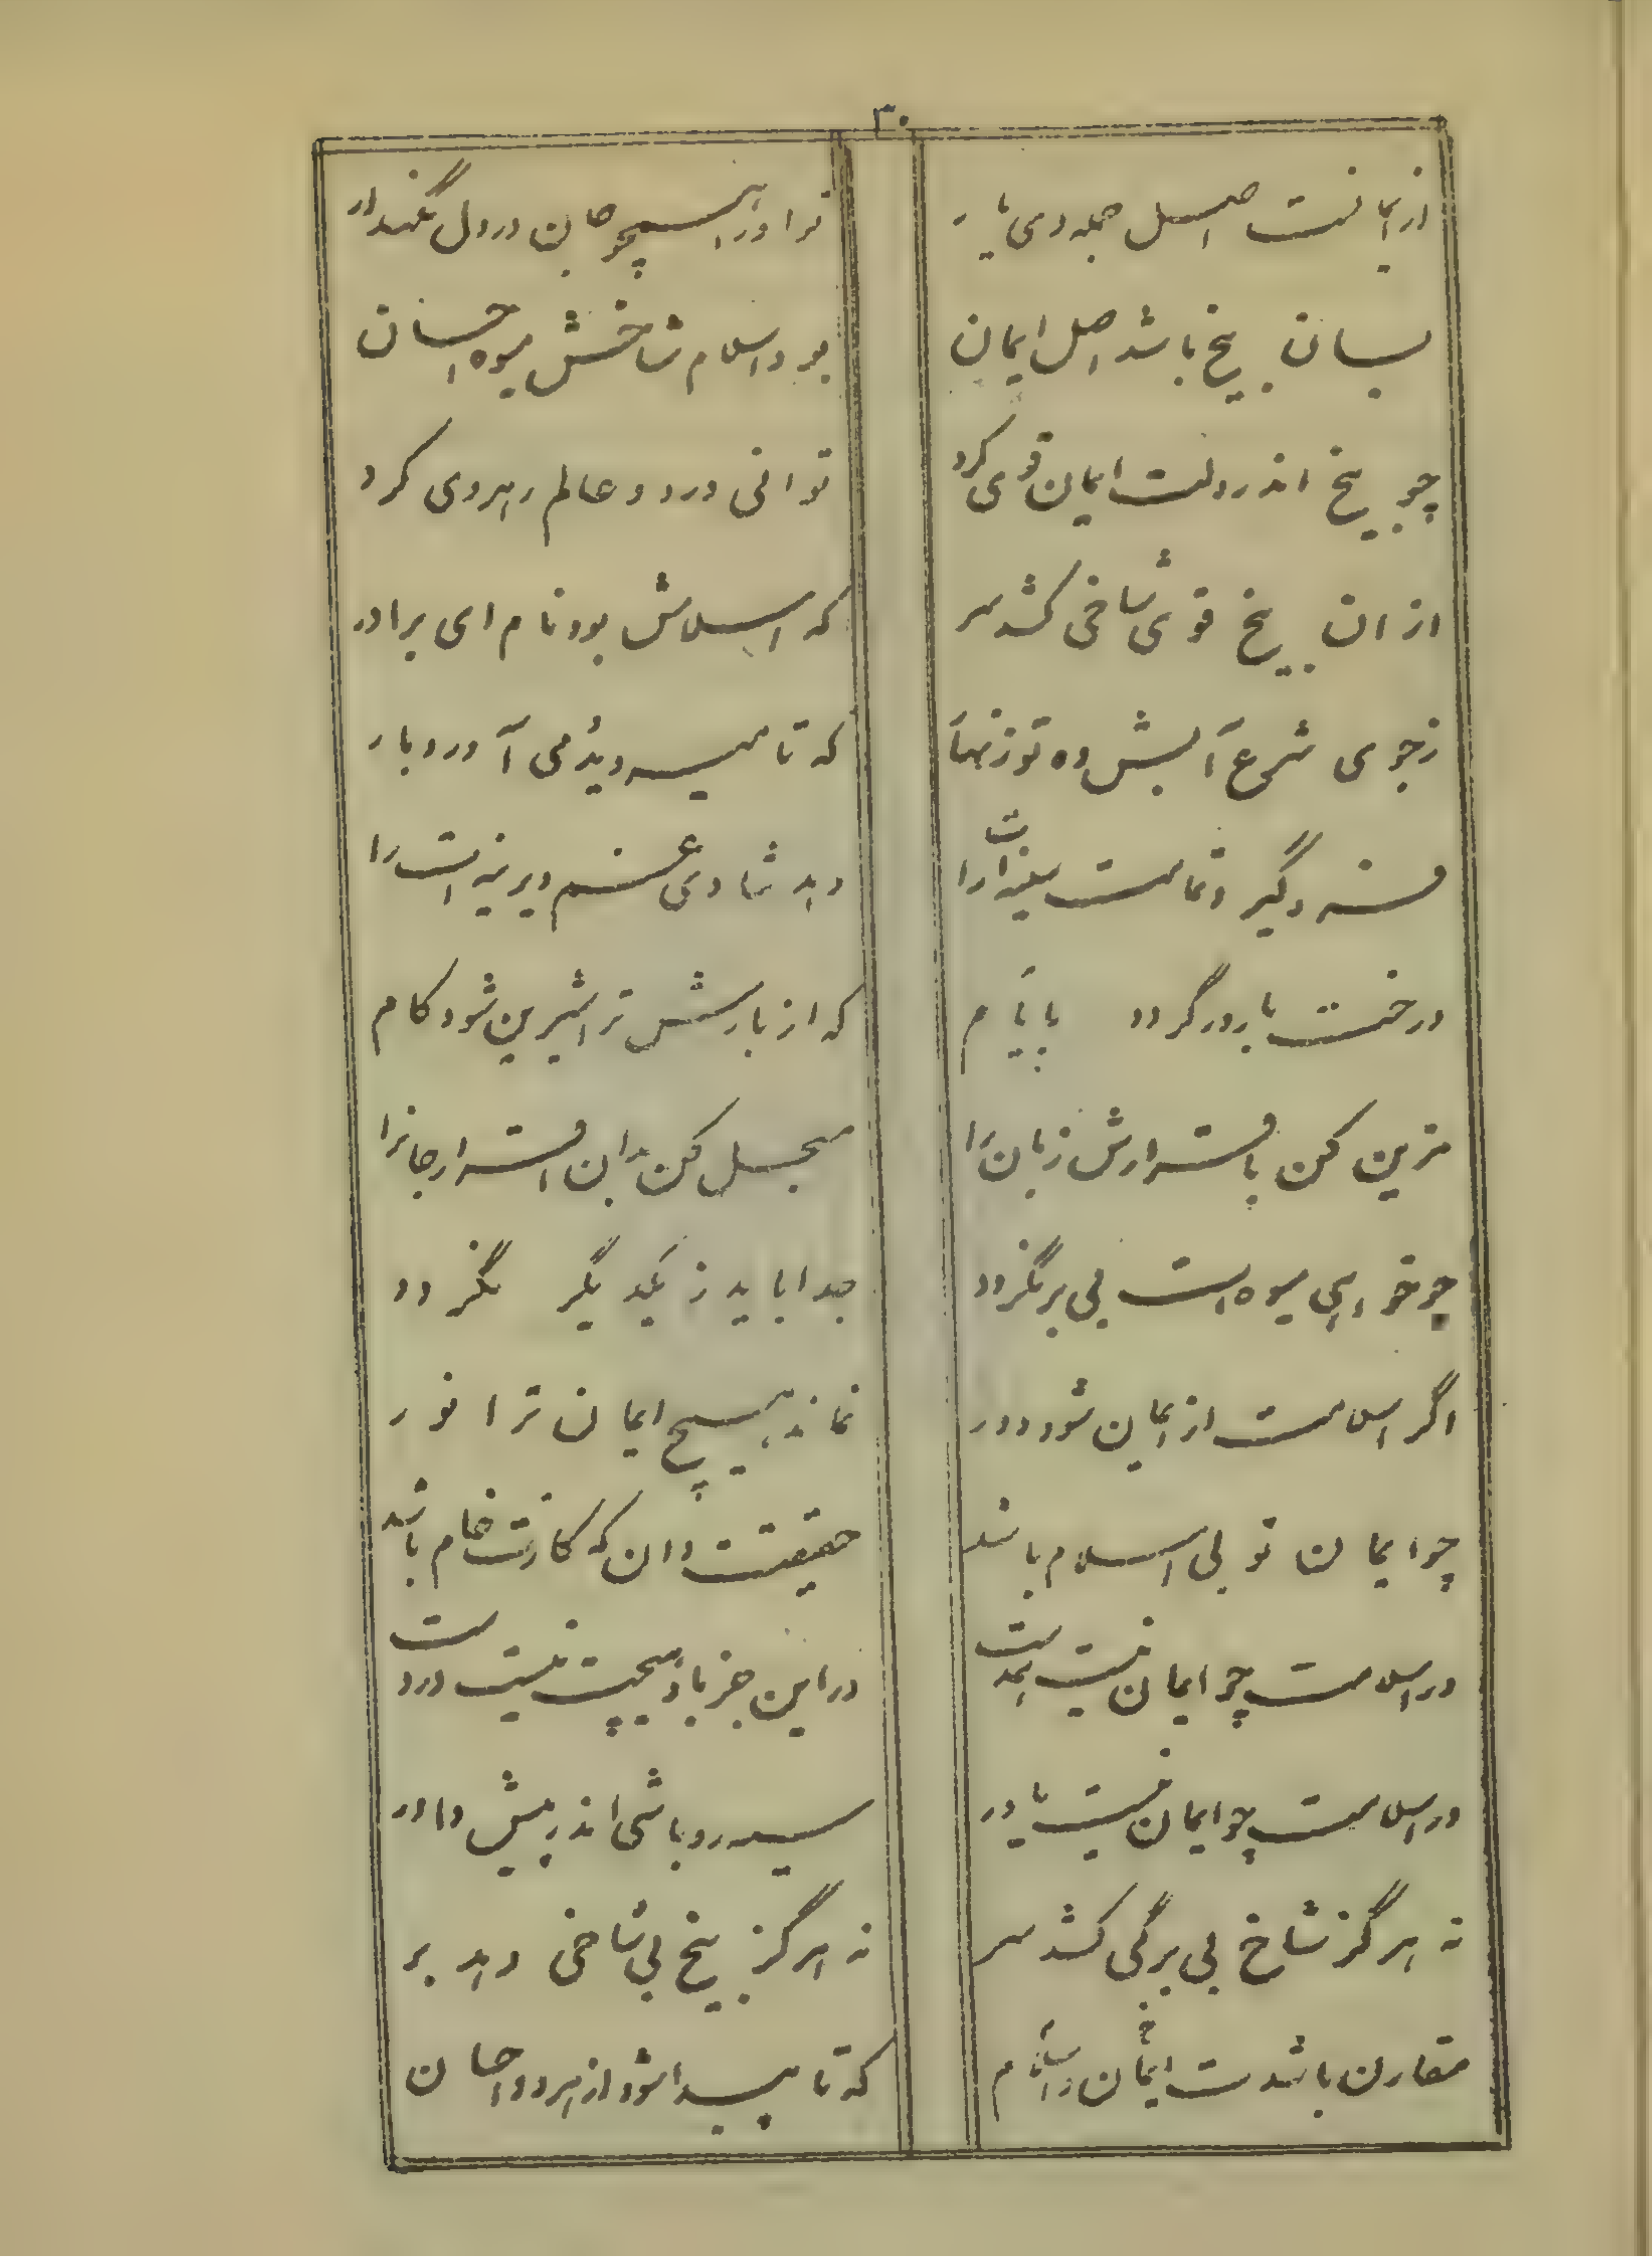 ۳۰
از ایمانست اصل جمله دی یار تو او را همچو جان در دل نگهدار
بسان بیخ باشد اصل ایمان بود اسلام شاخش میوه احسان
چو بیخ اندر دلت ایمان قوی کرد توانی در دو عالم رهروی کرد
از ان بیخ قوی شاخی کشد سر که اسلامش بود نام ای برادر
ز جوی شرع آبش ده تو زنهار که تا میوه می آورد بار
فرو گیرد تمامت سینه‌ات را دهد شادی غم دیرینه‌ات را
درخت بارور گردد بایام که از بارش ترا شیرین شود کام
مزین کن باقرارش زبان را مسجل کن بدان اقرار جانرا
چو خواهی میوه‌ات بی بر نگردد جدا باید ز یکدیگر نگردد
اگر اسلامت از ایمان شود دور نماند هیچ ایمان ترا نور
چو ایمان تو بی اسلام باشد حقیقت دان که کارت خام باشد
در اسلامت چو ایمان نیست در این جز باد هیچت نیست در دست
در اسلامت چو ایمان نیست یاور سیه رو باشی اندر پیش داور
نه هرگز شاخ بی برگی کشد سر نه هرگز بیخ بی شاخی دهد بر
مقارن باشدت ایمان و اسلام که تا پیدا شود از هر دو احسان